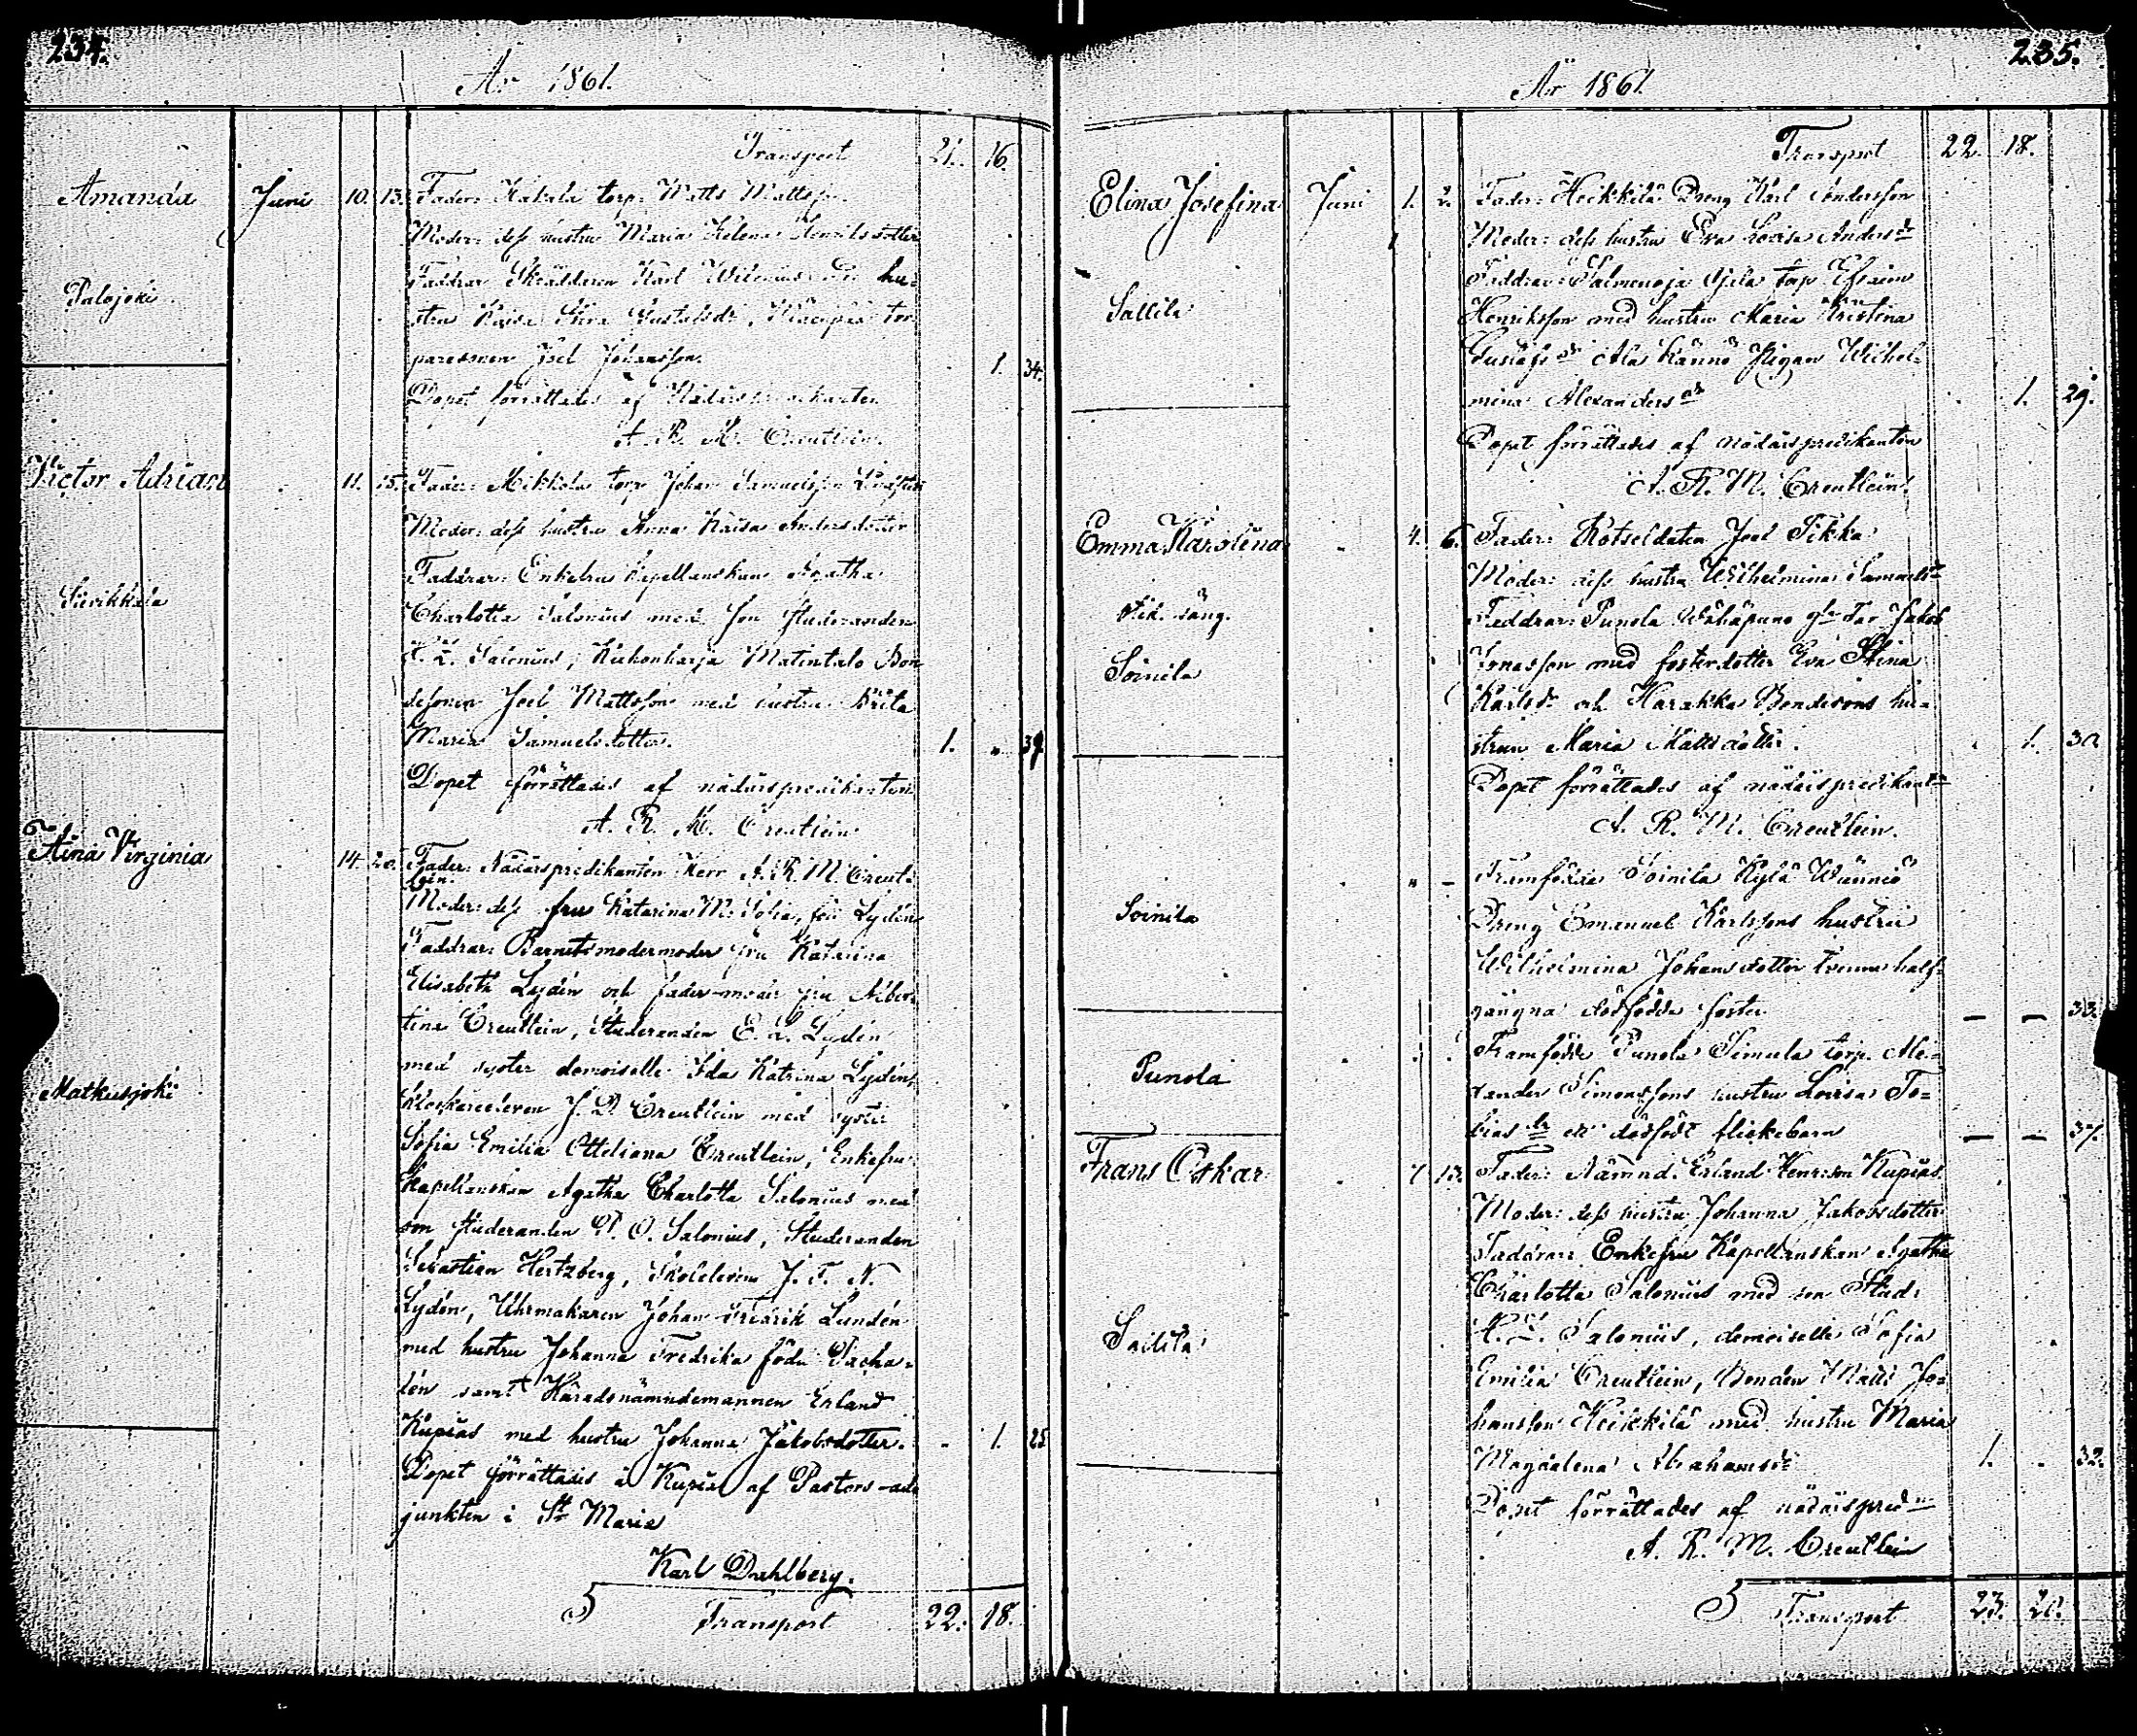 234.
År 1861.
Transport 21. 16.
Amanda Juni 10. 13. Fader: Kakala torp. Matts Mattsson
Moder: dess hustru Maria Helena Henriksdotter
Palojoki
Faddrar Skräddaren Karl Wilenius hu-
stru Kaisa Stina Gustafsdr, tor-
paresonen Joel Johansson. 1. 34.
Dopet förrättades af Nådårspredikanten
A. R. M. Creutlein.
Victor Adrian 11. 15. Fader: Mikkola torp Johan Samuelsson
Moder: dess hustru Anna Kaisa Andersdotter
Faddrar: Enkefru Kapellanskan Agatha
Charlotta Salonius med son Studeranden
Salonius, Matintalo Bon-
desonen Joel Mattsson med hustru Brita
Maria Samuelsdotter. 1. „ 39
Dopet förrättades af nådårspredikanten
A. R. M. Creutlein
Aina Virginia 14. 20. Fader: Nådårspredikanten Herr A. R. M. Creut-
lein.
Moder: dess fru Katarina M. Sofia, född Lydén
Faddrar: Barnets modermoder fru Katarina
Elisabeth Lydén och fader-moder fru Alber-
tina Creutlein, Studeranden E. L. Lydén
med syster demoiselle Ida Katrina Lydén,
Matkusjoki
J. D. Creutlein med syster
Sofia Emilia Otteliana Creutlein, Enkefru
Kapellanskan Agatha Charlotta Salonius med
son studeranden Salonius, Studeranden
Sebastian Hertzberg, Skoleleven J. F. N.
Lydén, Uhrmakaren Johan Fredrik Lundén
med hustru Johanna Fredrika född Pacha-
lén samt Häradsnämndemannen Erland
Kupias med hustru Johanna Jakobsdotter. 1. 25
Dopet förrättades å Kupias af Pastors-ad-
junkten i St Marie
Karl Dahlberg.
Transport 22. 18.
235.
År 1861
Transport 22. 18.
Elina Josefina Juni 1. 2. Fader: Heikkilä Dreng Karl Andersson
Moder: dess hustru Eva Lovisa Andersdr
Sallila
Faddrar: Salmenoja Ojala torp Efraim
Henriksson med hustru Maria Kristina
Gustafsdr Ala Kännö Pigan Wilhel-
mina Alexandersdr 1. 29.
Dopet förrättades af nådårspredikanten
A. R. M. Creutlein.
Emma Karolina 4. 6. Fader: Rotsoldaten Joel Pikka
Moder: dess hustru Wilhelmina Samuelsdr
Soinila
Faddrar: Punola Jakob
Jonasson med fosterdotter Eva Stina
Karlsdr och Harakka Bondesons hu-
strun Maria Mattsdotter. 1. 30
Dopet förrättades af nådårspredikantn
A. R. M. Creutlein.
Soinila
Framfödde Soinila Kylä Wännio
Dreng Emanuel Karlssons hustru
Wilhelmina Johansdotter tvenne half-
gångna dödfödda foster — — 33.
Punola
Framfödde Punola Simula torp. Ale-
xander Simonssons hustru Lovisa To-
biasdr ett dödfödt flickebarn — — 37.
Frans Oskar 7 13. Fader: Nämnd. Erland Henrsson Kupias
Moder: dess hustru Johanna Jakobsdotter
Faddrar: Enkefru Kapellanskan Agatha
Charlotta Salonius med son Stud:
Salonius, demoiselle Sofia
Emilia Creutlein, Bonden Matts Jo-
hansson Heikkilä med hustru Maria
Magdalena Abrahamsdr 1. 32.
Dopet förrättades af nådårspredn
A. R. M. Creutlein
Transport 23. 20.